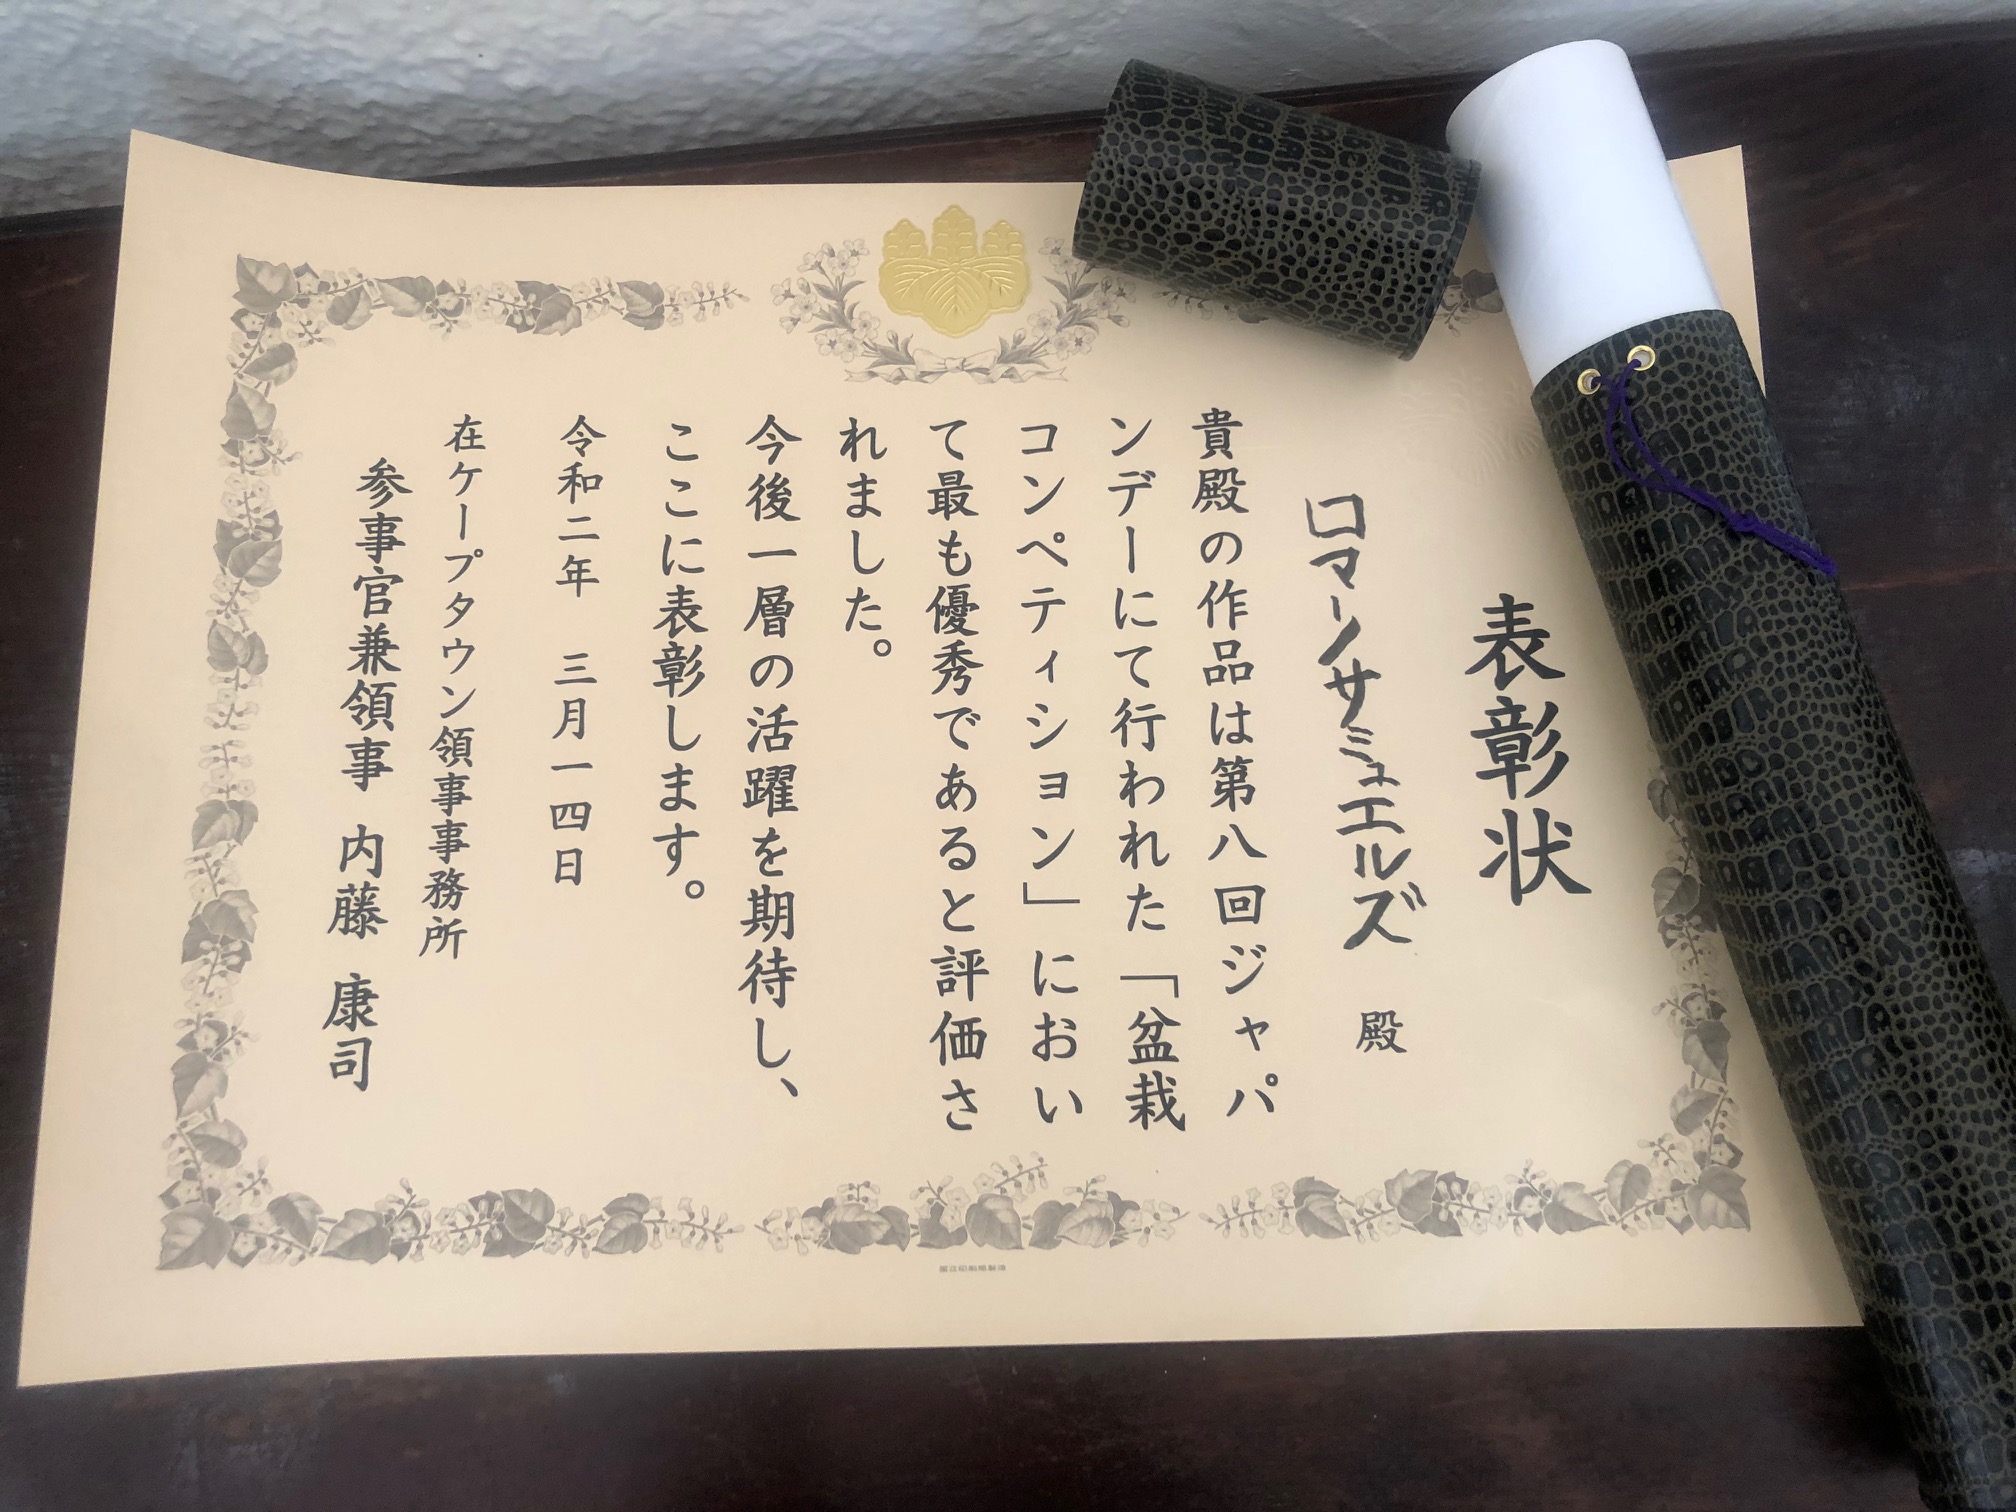 表彰状
ロマーノサミュエルズ 殿
貴殿の作品は第八回ジャパ
ンデーにて行われた「盆栽
コンペティション」におい
て最も優秀であると評価さ
れました。
今後一層の活躍を期待し、
ここに表彰します。
令和二年 三月一四日
在ケープタウン領事事務所
参事官兼領事 内藤 康司
国立印刷局製造